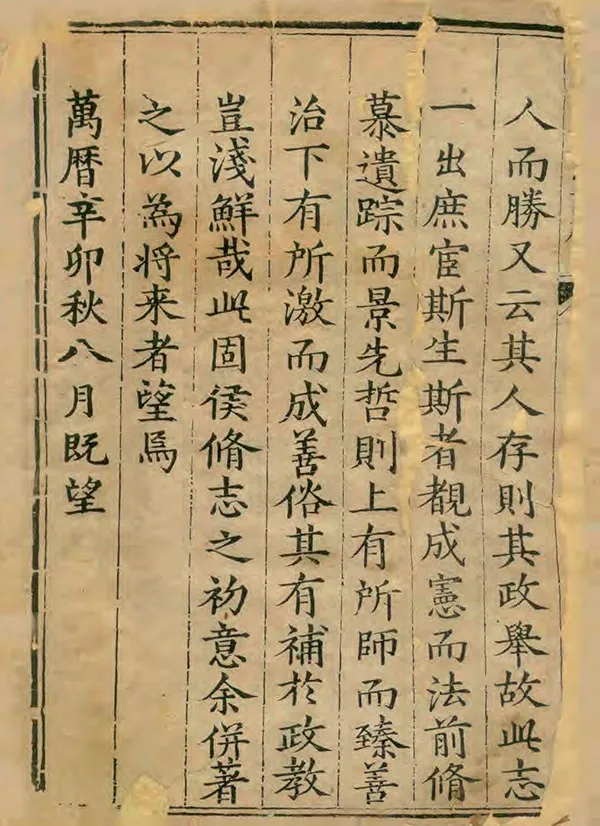 人而勝又云其人存則其政舉故此志
一出庶宦斯生斯者覩成憲而法前脩
慕遺踪而景先哲則上有所師而臻善
治下有所激而成善俗其有補於政教
豈淺鮮哉此固侯脩志之初意余併著
之以為将来者望焉
萬暦辛卯秋八月既望